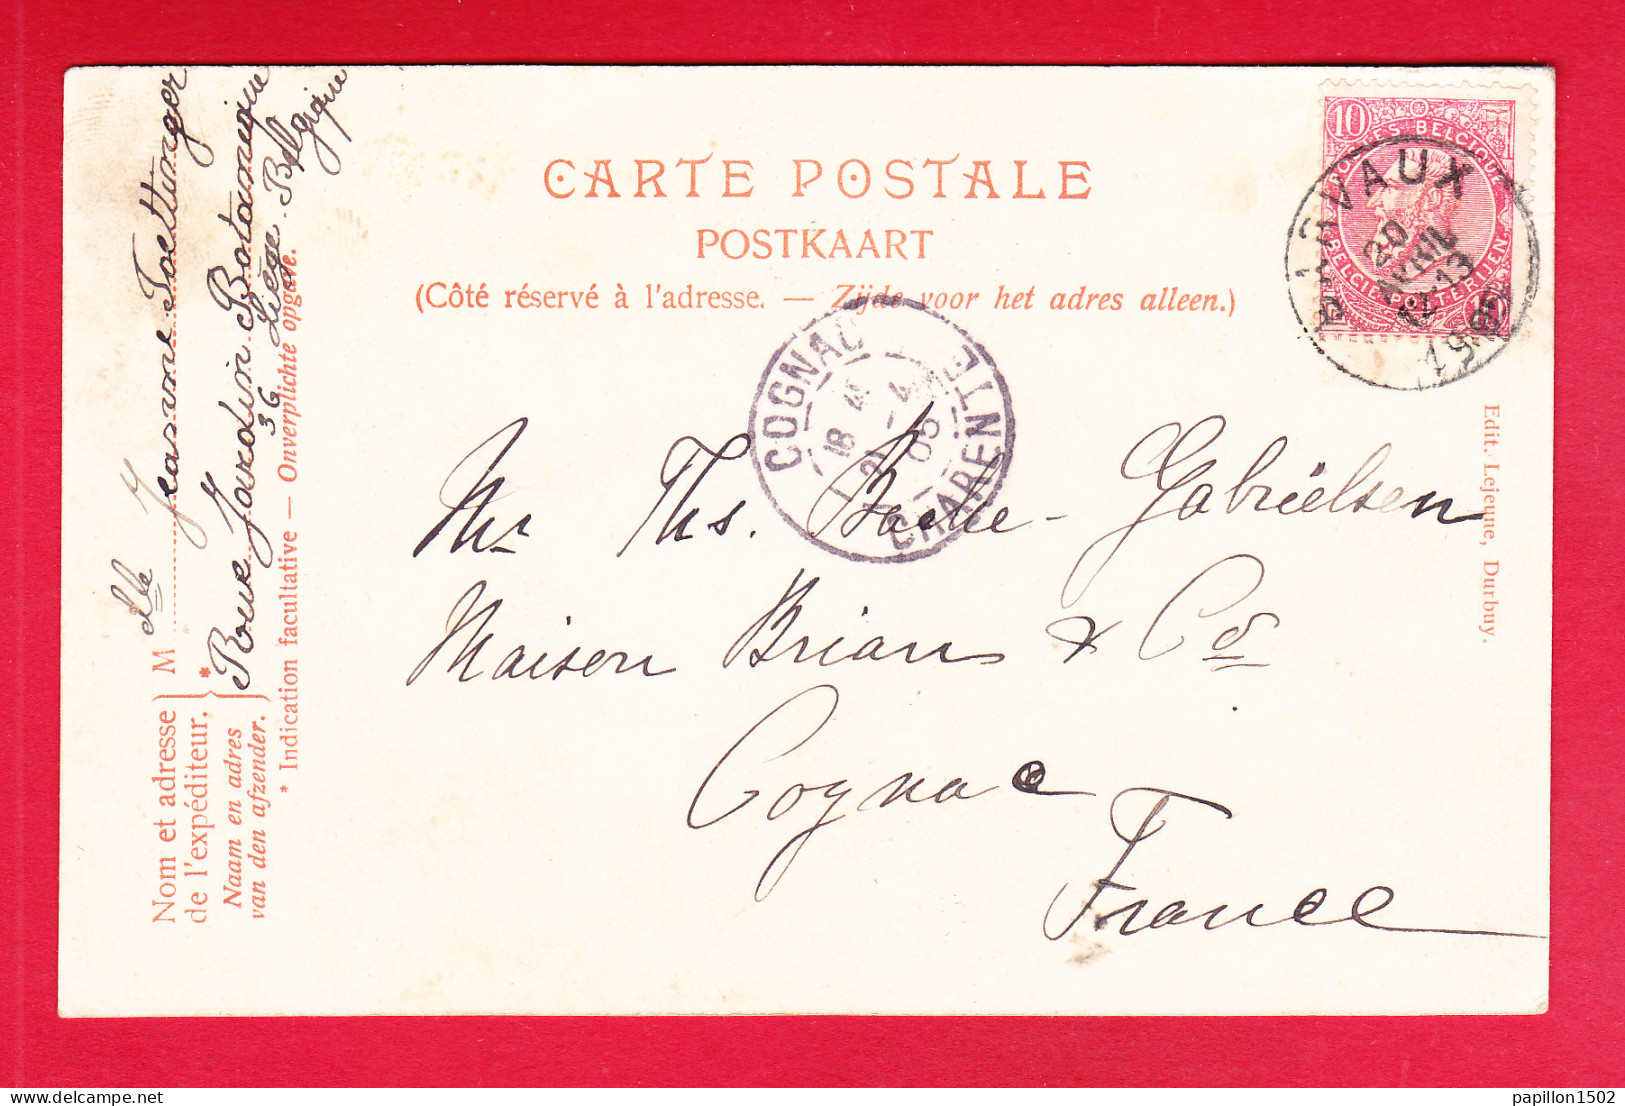 CARTE POSTALE
POSTKAART
(Côté réservé à l'adresse. — Zijde voor het adres alleen.)
10
POSTES-BELGIQUE
BELGIE-POSTERIJEN
BARVAUX
20
AVRIL
13
COGNAC
18
21 4
05
CHARENTE
Mr Ths. Bache-Gabrielsen
Maison Brian & Co
Cognac
France
Edit. Lejeune, Durbuy.
Nom et adresse
de l'expéditeur.
Naam en adres
van den afzender.
M elle Jeanne
Rue Jardin Botanique
36 Liège-Belgique
* Indication facultative — Onverplichte opgave.
papillon1502